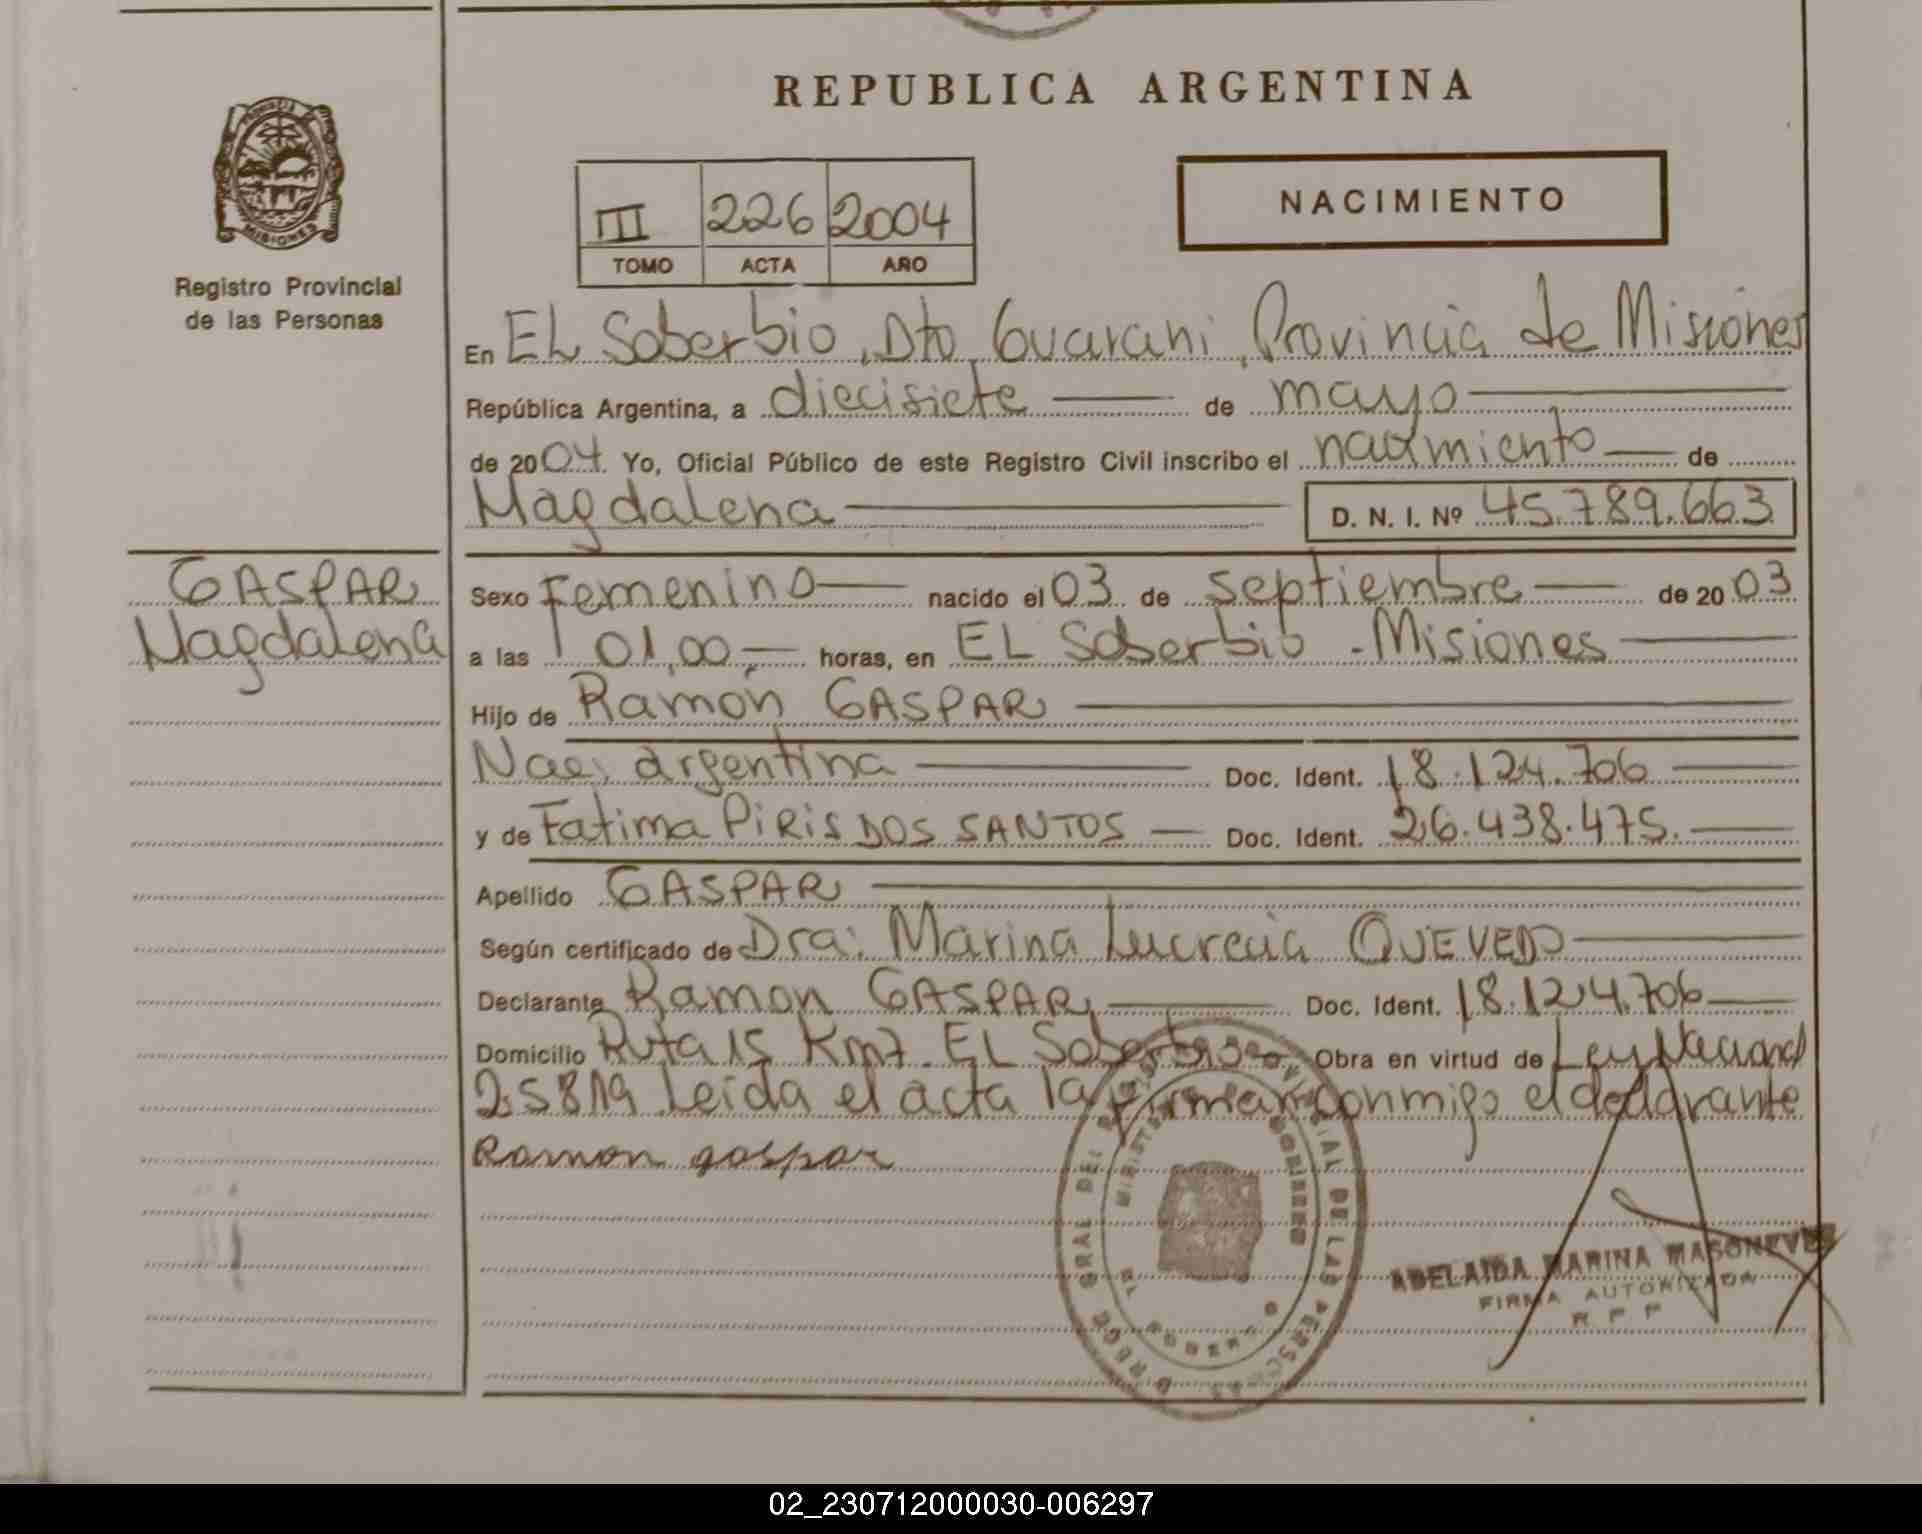 REPUBLICA ARGENTINA
MISIONES
Registro Provincial
de las Personas
III 226 2004
TOMO ACTA AÑO
NACIMIENTO
En EL Soberbio, Dto, Guarani, Provincia de Misiones
República Argentina, a diecisiete de mayo
de 2004. Yo, Oficial Público de este Registro Civil inscribo el nacimiento de
Magdalena D. N. I. Nº 45.789.663
GASPAR
Magdalena
Sexo Femenino nacido el 03 de Septiembre de 2003
a las 01,00.- horas, en EL Soberbio - Misiones
Hijo de Ramón GASPAR
Nac. argentina Doc. Ident. 18.124.706
y de Fatima PIRIS DOS SANTOS Doc. Ident. 26.438.475.
Apellido GASPAR
Según certificado de Dra: Marina Lucrecia QUEVEDO
Declarante Ramon GASPAR Doc. Ident. 18.124.706
Domicilio Ruta 15 Km7. EL Soberbio Obra en virtud de Ley Nacional
25819 Leida el acta la firman conmigo el declarante
Ramon gaspar
ADELAIDA MARINA
FIRMA AUTORIZADA
02_230712000030-006297